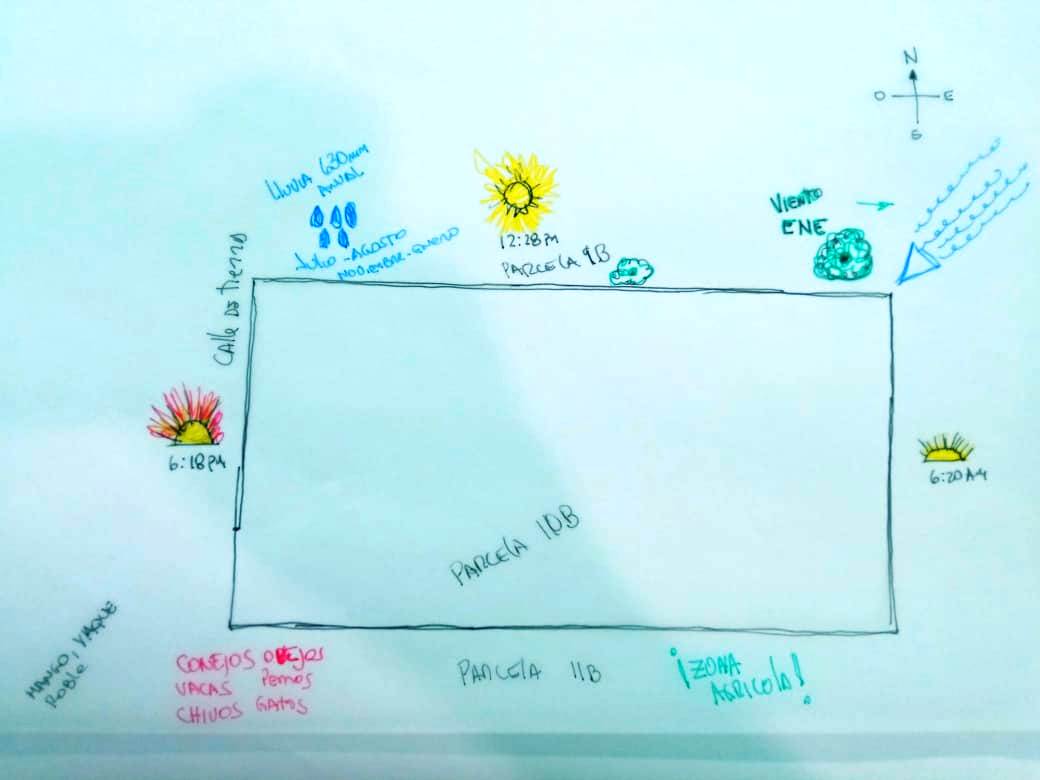 N
O E
S
LLUVIA 630mm
ANUAL
Julio - AGOSTO
NOVIEMBRE - ENERO
12:28PM
PARCELA 9B
VIENTO
ENE
Calle de tierra
6:18PM
6:20AM
PARCELA 10B
MANGO, YAQUE
ROBLE
CONEJOS OVEJOS
VACAS Perros
CHIVOS GATOS
PARCELA 11B
¡ZONA
AGRICOLA!